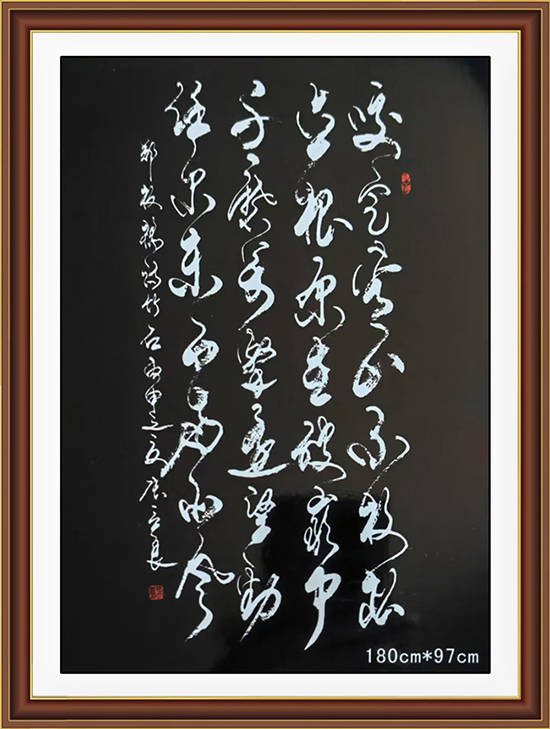 咬定青山不放松
立根原在破岩中
千磨万击还坚劲
任尔东西南北风
郑板桥诗竹石
180cm*97cm